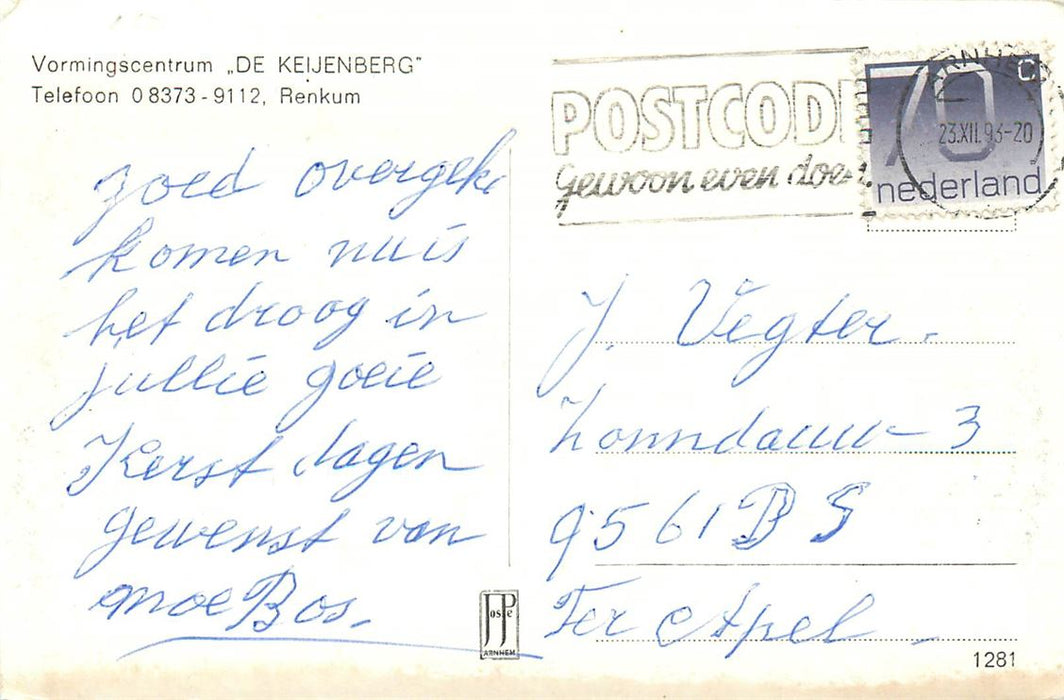 Vormingscentrum „DE KEIJENBERG"
Telefoon 08373-9112, Renkum
zoed overgeke
komen nu is
het droog in
jullie goeie
Kerst dagen
gewenst van
moe Bos.
POSTCODE
gewoon even doen
ARNHEM
23.XII.93-20
70 c
nederland
J. Vegter.
Zonndauw 3
9561 BS
Ter Apel
JosPe
ARNHEM
1281